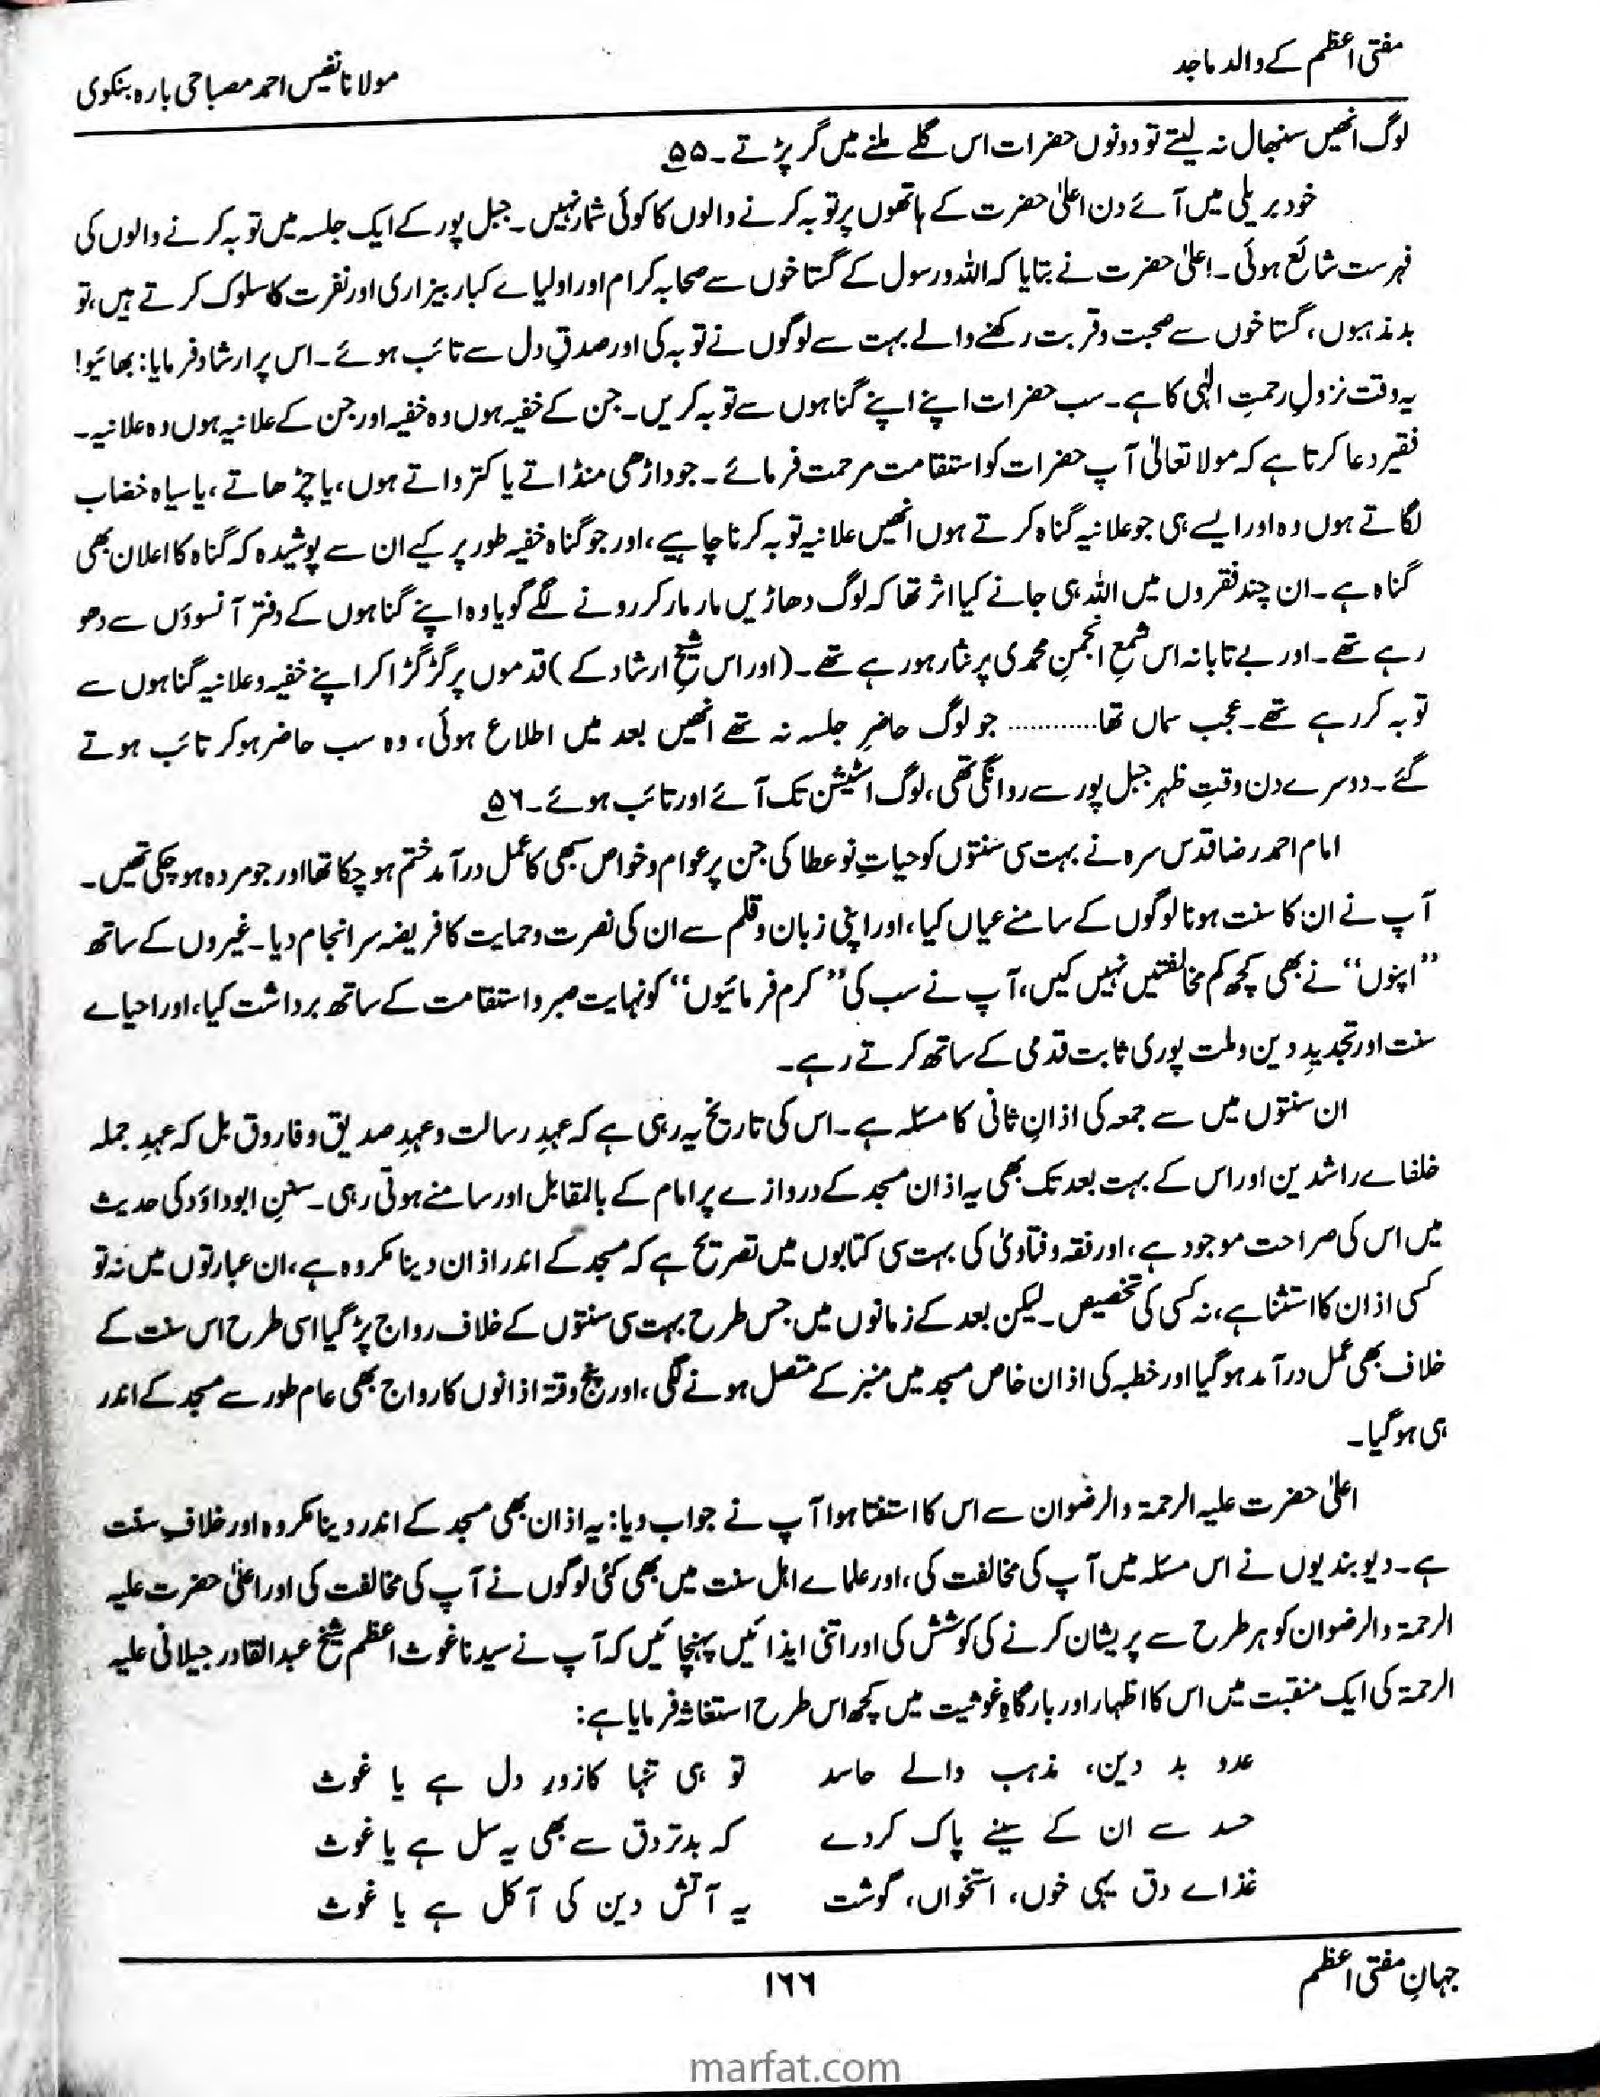 مفتی اعظم کے والد ماجد
مولانا نفیس احمد مصباحی بارہ بنکوی
لوگ انھیں سنبھال نہ لیتے تو دونوں حضرات اس گلے ملنے میں گر پڑتے۔ ۵۵
خود بریلی میں آئے دن اعلیٰ حضرت کے ہاتھوں پر توبہ کرنے والوں کا کوئی شمار نہیں۔ جبل پور کے ایک جلسہ میں توبہ کرنے والوں کی
فہرست شائع ہوئی۔ اعلیٰ حضرت نے بتایا کہ اللہ و رسول کے گستاخوں سے صحابہ کرام اور اولیاے کبار بیزاری اور نفرت کا سلوک کرتے ہیں، تو
بدمذہبوں، گستاخوں سے صحبت و قربت رکھنے والے بہت سے لوگوں نے توبہ کی اور صدقِ دل سے تائب ہوئے۔ اس پر ارشاد فرمایا: بھائیو!
یہ وقت نزولِ رحمتِ الٰہی کا ہے۔ سب حضرات اپنے اپنے گناہوں سے توبہ کریں۔ جن کے خفیہ ہوں وہ خفیہ اور جن کے علانیہ ہوں وہ علانیہ۔
فقیر دعا کرتا ہے کہ مولا تعالیٰ آپ حضرات کو استقامت مرحمت فرمائے۔ جو داڑھی منڈاتے یا کترواتے ہوں، یا چڑھاتے، یا سیاہ خضاب
لگاتے ہوں وہ اور ایسے ہی جو علانیہ گناہ کرتے ہوں انھیں علانیہ توبہ کرنا چاہیے، اور جو گناہ خفیہ طور پر کیے ان سے پوشیدہ کہ گناہ کا اعلان بھی
گناہ ہے۔ ان چند فقروں میں اللہ ہی جانے کیا اثر تھا کہ لوگ دھاڑیں مار مار کر رونے لگے گویا وہ اپنے گناہوں کے دفتر آنسوؤں سے دھو
رہے تھے۔ اور بے تابانہ اس شمعِ انجمنِ محمدی پر نثار ہو رہے تھے۔ (اور اس شیخِ ارشاد کے) قدموں پر گڑگڑا کر اپنے خفیہ و علانیہ گناہوں سے
توبہ کر رہے تھے۔ عجب سماں تھا............ جو لوگ حاضرِ جلسہ نہ تھے انھیں بعد میں اطلاع ہوئی، وہ سب حاضر ہو کر تائب ہوتے
گئے۔ دوسرے دن وقتِ ظہر جبل پور سے روانگی تھی، لوگ اسٹیشن تک آئے اور تائب ہوئے۔ ۵۶
امام احمد رضا قدس سرہ نے بہت سی سنتوں کو حیاتِ نو عطا کی جن پر عوام و خواص سبھی کا عمل درآمد ختم ہو چکا تھا اور جو مردہ ہو چکی تھیں۔
آپ نے ان کا سنت ہونا لوگوں کے سامنے عیاں کیا، اور اپنی زبان و قلم سے ان کی نصرت و حمایت کا فریضہ سرانجام دیا۔ غیروں کے ساتھ
”اپنوں“ نے بھی کچھ کم مخالفتیں نہیں کیں، آپ نے سب کی ”کرم فرمائیوں“ کو نہایت صبر و استقامت کے ساتھ برداشت کیا، اور احیاے
سنت اور تجدیدِ دین و ملت پوری ثابت قدمی کے ساتھ کرتے رہے۔
ان سنتوں میں سے جمعہ کی اذانِ ثانی کا مسئلہ ہے۔ اس کی تاریخ یہ رہی ہے کہ عہدِ رسالت و عہدِ صدیق و فاروق بل کہ عہدِ جملہ
خلفاے راشدین اور اس کے بہت بعد تک بھی یہ اذان مسجد کے دروازے پر امام کے بالمقابل اور سامنے ہوتی رہی۔ سننِ ابوداؤد کی حدیث
میں اس کی صراحت موجود ہے، اور فقہ و فتاویٰ کی بہت سی کتابوں میں تصریح ہے کہ مسجد کے اندر اذان دینا مکروہ ہے، ان عبارتوں میں نہ تو
کسی اذان کا استثنا ہے، نہ کسی کی تخصیص۔ لیکن بعد کے زمانوں میں جس طرح بہت سی سنتوں کے خلاف رواج پڑ گیا اسی طرح اس سنت کے
خلاف بھی عمل درآمد ہو گیا اور خطبہ کی اذان خاص مسجد میں منبر کے متصل ہونے لگی، اور پنج وقتہ اذانوں کا رواج بھی عام طور سے مسجد کے اندر
ہی ہو گیا۔
اعلیٰ حضرت علیہ الرحمۃ والرضوان سے اس کا استفتا ہوا آپ نے جواب دیا: یہ اذان بھی مسجد کے اندر دینا مکروہ اور خلافِ سنت
ہے۔ دیوبندیوں نے اس مسئلہ میں آپ کی مخالفت کی، اور علماے اہل سنت میں بھی کئی لوگوں نے آپ کی مخالفت کی اور اعلیٰ حضرت علیہ
الرحمۃ والرضوان کو ہر طرح سے پریشان کرنے کی کوشش کی اور اتنی ایذائیں پہنچائیں کہ آپ نے سیدنا غوث اعظم شیخ عبدالقادر جیلانی علیہ
الرحمۃ کی ایک منقبت میں اس کا اظہار اور بارگاہِ غوثیت میں کچھ اس طرح استغاثہ فرمایا ہے:
عدو بد دین، مذہب والے حاسد تو ہی تنہا کا زورِ دل ہے یا غوث
حسد سے ان کے سینے پاک کر دے کہ بدتر دق سے بھی یہ سل ہے یا غوث
غذاے دق یہی خوں، استخواں، گوشت یہ آتش دین کی آکل ہے یا غوث
جہانِ مفتی اعظم
۱۶۶
marfat.com